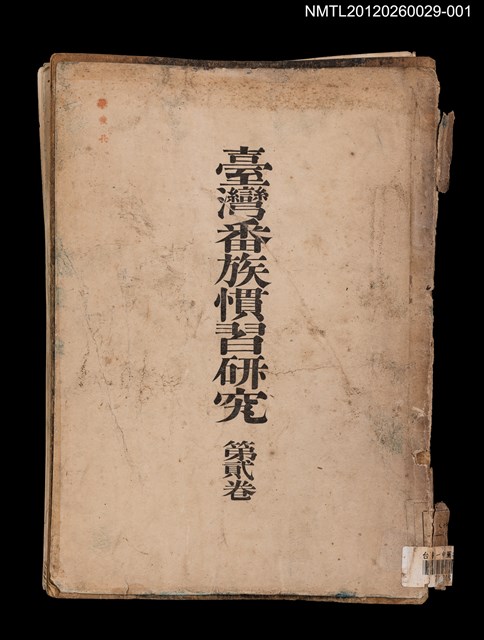 NMTL20120260029-001
臺灣番族慣習研究
第貳卷